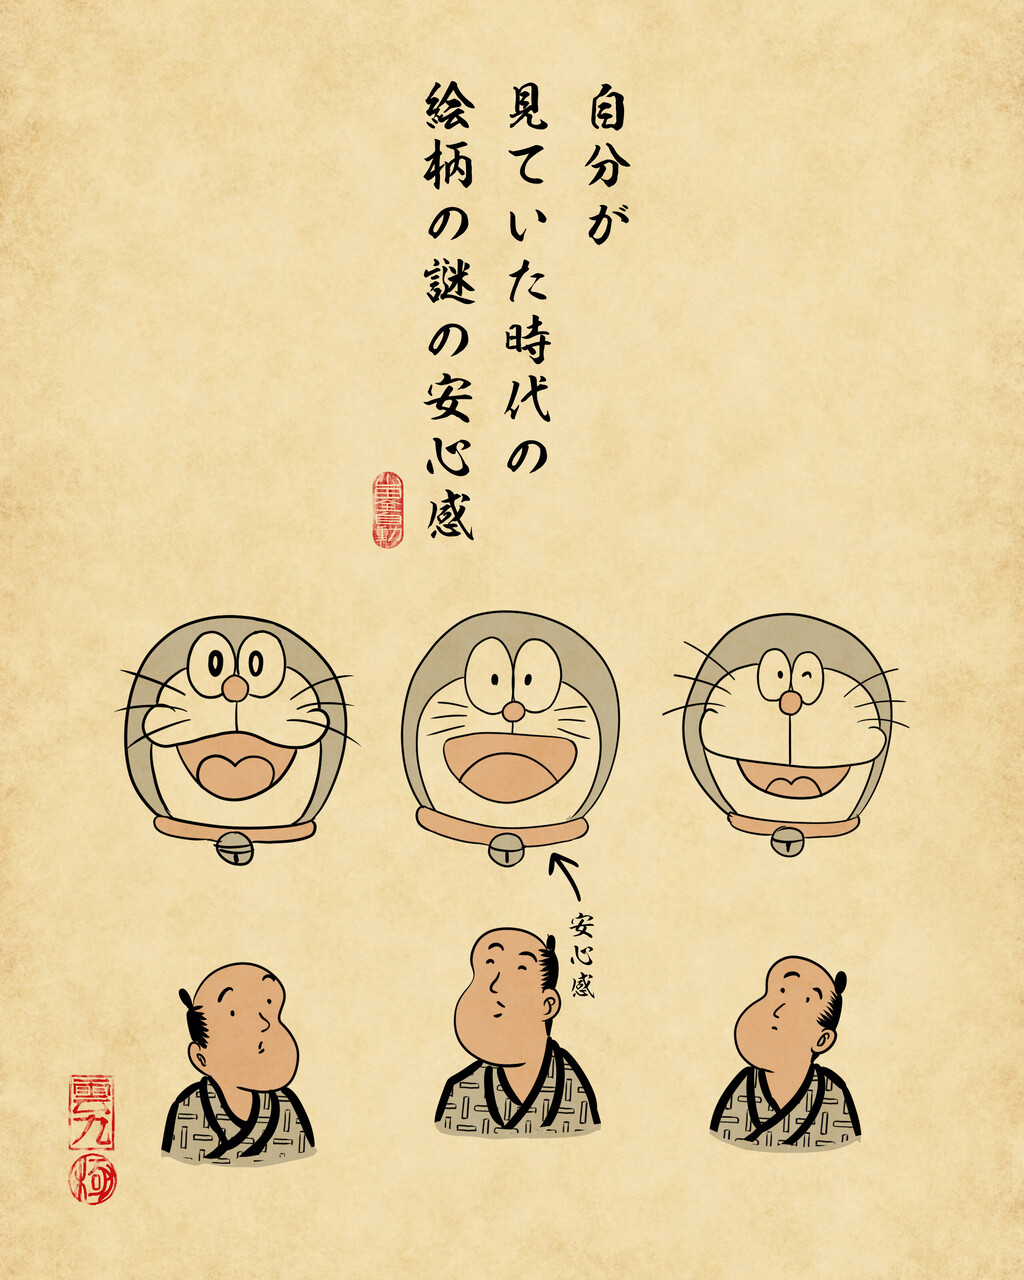 自分が
見ていた時代の
絵柄の謎の安心感
安心感